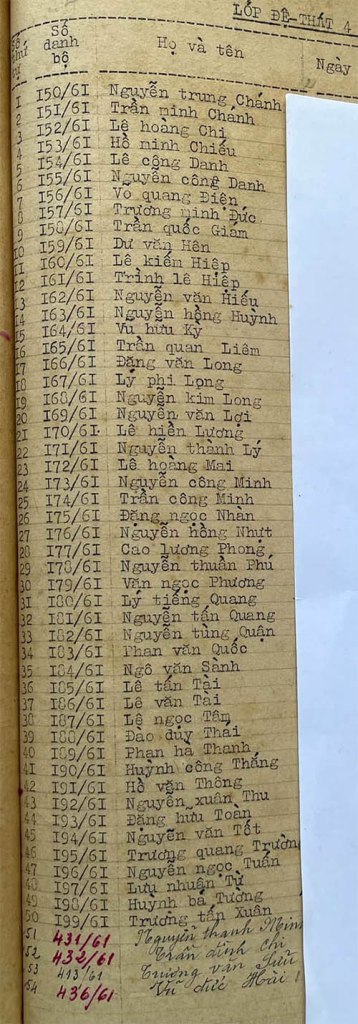 LỚP ĐỆ-THẤT 4
Số thứ tự Số danh bộ Họ và tên Ngày
1 I50/6I Nguyễn trung Chánh
2 I5I/6I Trần minh Chánh
3 I52/6I Lê hoàng Chi
4 I53/6I Hồ minh Chiếu
5 I54/6I Lê công Danh
6 I55/6I Nguyễn công Danh
7 I56/6I Võ quang Điện
8 I57/6I Trương minh Đức
9 I58/6I Trần quốc Giám
10 I59/6I Dư văn Hên
11 I60/6I Lê kiếm Hiệp
12 I6I/6I Trình lê Hiệp
13 I62/6I Nguyễn văn Hiếu
14 I63/6I Nguyễn hồng Huỳnh
15 I64/6I Vũ hữu Kỳ
16 I65/6I Trần quan Liêm
17 I66/6I Đặng văn Long
18 I67/6I Lý phi Long
19 I68/6I Nguyễn kim Long
20 I69/6I Nguyễn văn Lợi
21 I70/6I Lê hiền Lương
22 I7I/6I Nguyễn thành Lý
23 I72/6I Lê hoàng Mai
24 I73/6I Nguyễn công Minh
25 I74/6I Trần công Minh
26 I75/6I Đặng ngọc Nhàn
27 I76/6I Nguyễn hồng Nhựt
28 I77/6I Cao lương Phong
29 I78/6I Nguyễn thuần Phú
30 I79/6I Văn ngọc Phương
3I I80/6I Lý tiếng Quang
32 I8I/6I Nguyễn tấn Quang
33 I82/6I Nguyễn tùng Quận
34 I83/6I Phan văn Quốc
35 I84/6I Ngô văn Sành
36 I85/6I Lê tấn Tài
37 I86/6I Lê văn Tài
38 I87/6I Lê ngọc Tâm
39 I88/6I Đào duy Thái
40 I89/6I Phan hà Thanh
4I I90/6I Huỳnh công Thắng
42 I9I/6I Hồ văn Thông
43 I92/6I Nguyễn xuân Thu
44 I93/6I Đặng hữu Toàn
45 I94/6I Nguyễn văn Tốt
46 I95/6I Trương quang Trường
47 I96/6I Nguyễn ngọc Tuấn
48 I97/6I Lưu nhuận Từ
49 I98/6I Huỳnh bá Tường
50 I99/6I Trương tấn Xuân
51 431/61 Nguyễn thanh Minh
52 432/61 Trần đình Chi
53 413/61 Trương văn Sửu
54 436/61 Vũ đức Hải